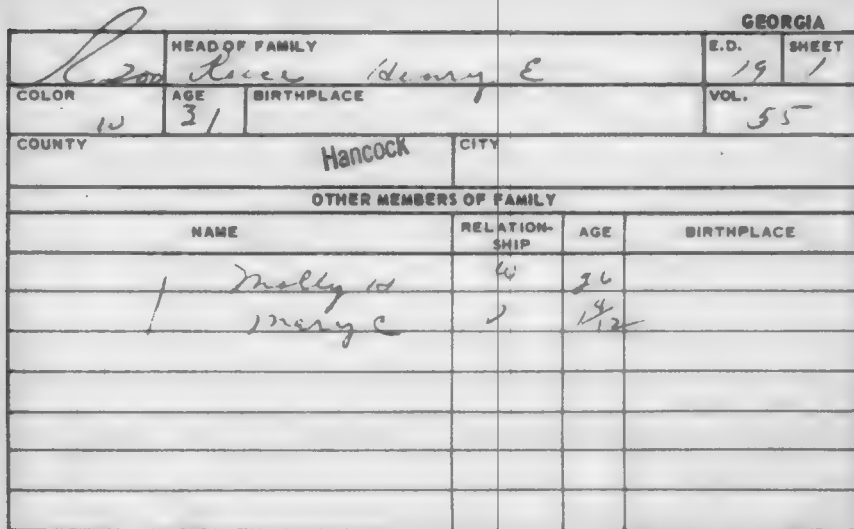 GEORGIA
HEAD OF FAMILY E.D. SHEET
200 Henry E 19 1
COLOR AGE BIRTHPLACE VOL.
W 31 55
COUNTY Hancock CITY
OTHER MEMBERS OF FAMILY
NAME RELATION-SHIP AGE BIRTHPLACE
Molly H W 26
Mary C